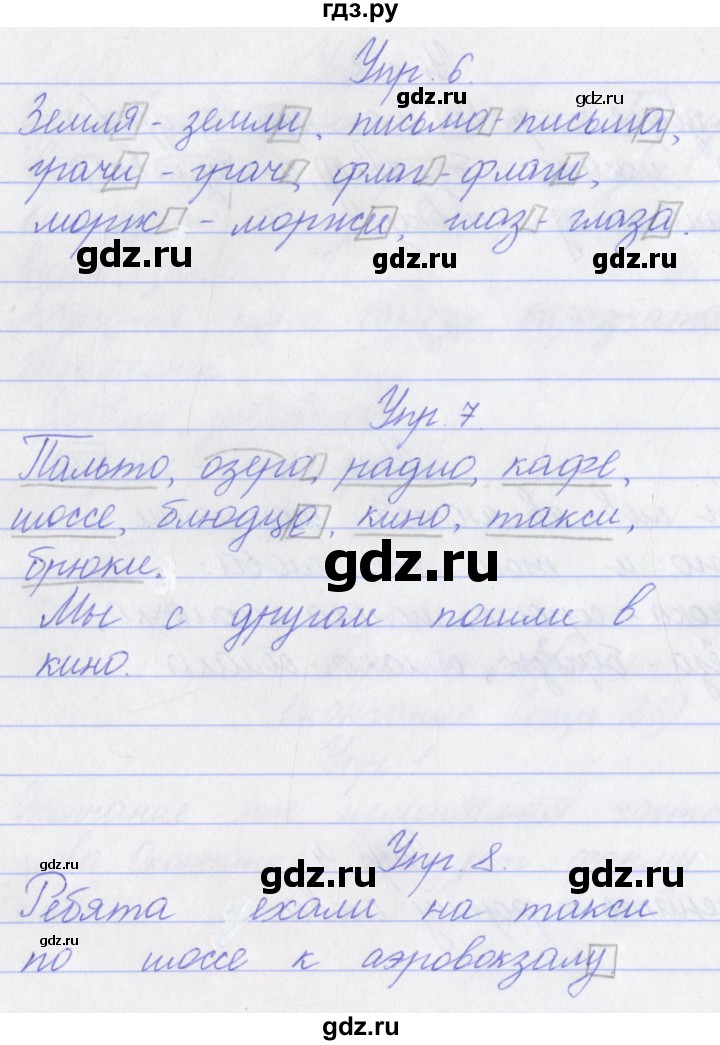 гдз.ру
Упр. 6.
Земля - земли, письмо - письма,
gdz.ru gdz.ru
грачи - грач, флаг - флаги,
морж - моржи, глаз - глаза.
gdz.ru gdz.ru gdz.ru
Упр. 7.
Пальто, озеро, радио, кафе,
шоссе, блюдце, кино, такси,
брюки.
gdz.ru
Мы с другом пошли в
кино.
Упр. 8.
gdz.ru gdz.ru gdz.ru
Ребята уехали на такси
gdz.ru
по шоссе к аэровокзалу.
gdz.ru